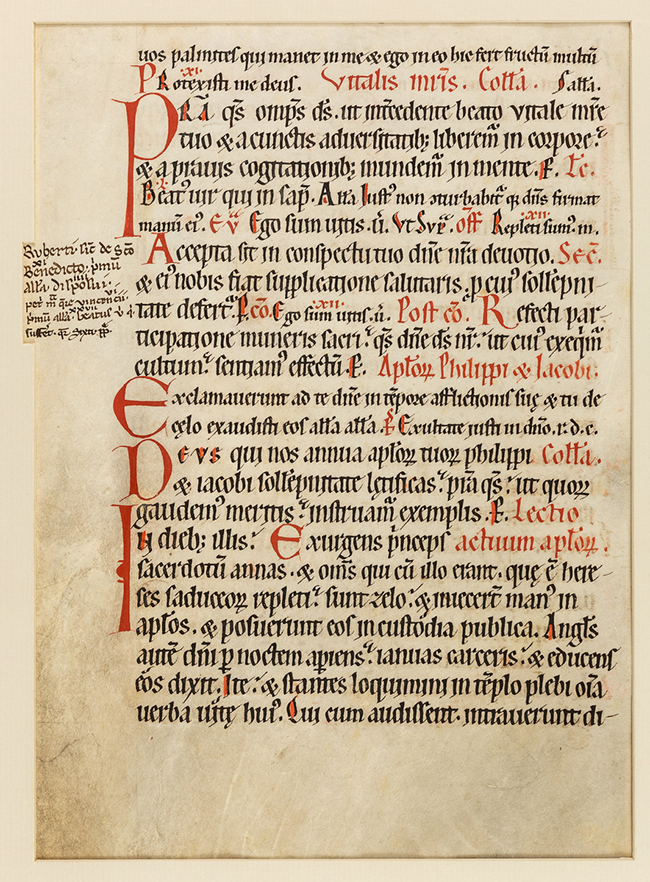 uos palmites qui manet in me & ego in eo hic fert fructū multū
Protexisti me deus. Vitalis mr̄is. Coll̄a. Sall̄a.
PRA q̄s om̄ps d̄s. ut int̄cedente beato vitale mr̄e
tuo & a cunctis aduersitatib; liberem̄ in corpore.
& a prauis cogitationib; mundem̄ in mente. P. Le.
Beat' uir qui in sap̄. All̄a Iust' non ɔturbabit̄ q̄ dn̄s firmat
manū ei'. Ev̄ Ego sum uitis. ū. Vt Sup̄. off̄ Repleti sum'. in.
Accepta sit in conspectu tuo dn̄e nr̄a deuotio. Sec̄.
& ei' nobis fiat supplicatione salutaris. p cui' sollēpni-
tate defert̄. P. c̄o. Ego sum uitis. ū. Post c̄o. Refecti par-
ticipatione muneris sacri. q̄s dn̄e d̄s nr̄. ut cui' exeq̄m̄
cultum. sentiam' effectū. P. Aplōꝝ Philippi & Iacobi.
Exclamauerunt ad te dn̄e in tēpore afflictionis suę & tu de
cęlo exaudisti eos all̄a all̄a. P̄s Exultate iusti in dn̄o. r. d. c.
Deus qui nos annua aplōꝝ tuoꝝ philippi Coll̄a.
& iacobi sollēpnitate lętificas. p̄sta q̄s. ut quoꝝ
gaudem' meritis. instruam̄ exemplis. P. Lectio
In dieb; illis. Exurgens p̄nceps actuum aplōꝝ.
sacerdotū annas. & om̄s qui cū illo erant. quę ē here-
ses saduceoꝝ repleti. sunt zelo. & iniecer̄t man' in
aplōs. & posuerunt eos in custodia publica. Angl̄s
autē dn̄i p̱ noctem ap̱iens. ianuas carceris. & educens
eos dixit. Ite. & stantes loquimini in tēplo plebi oīa
uerba uitę hui'. Qui cum audissent. intrauerunt di-
Rvberti. sic de Sc̄o
Benedicto. p̄mū
all̄a. disposui.